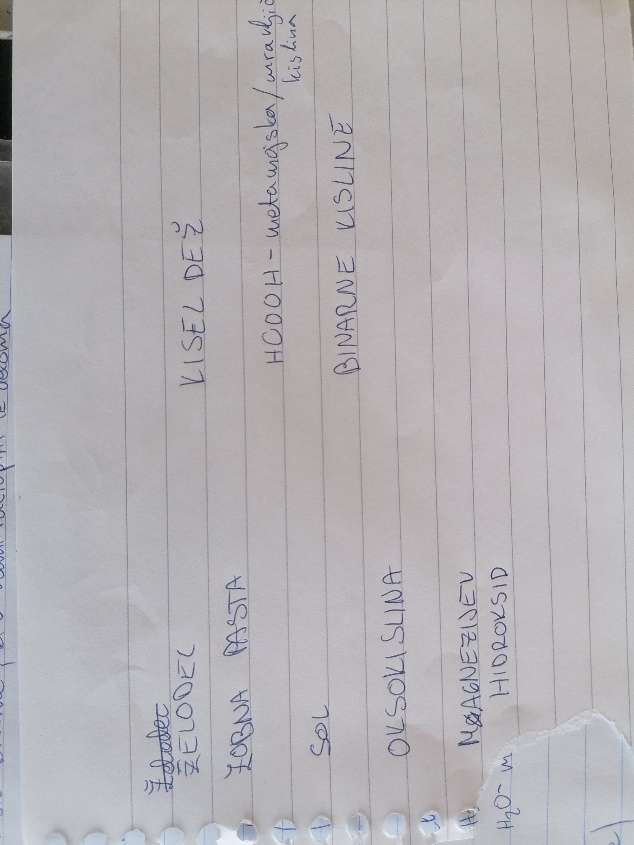 ŽELODEC
KISEL DEŽ
ZOBNA PASTA
HCOOH - metanojska/mravljič
kislina
SOL
BINARNE KISLINE
OKSOKISLINA
MAGNEZIJEV
HIDROKSID
H₂O -